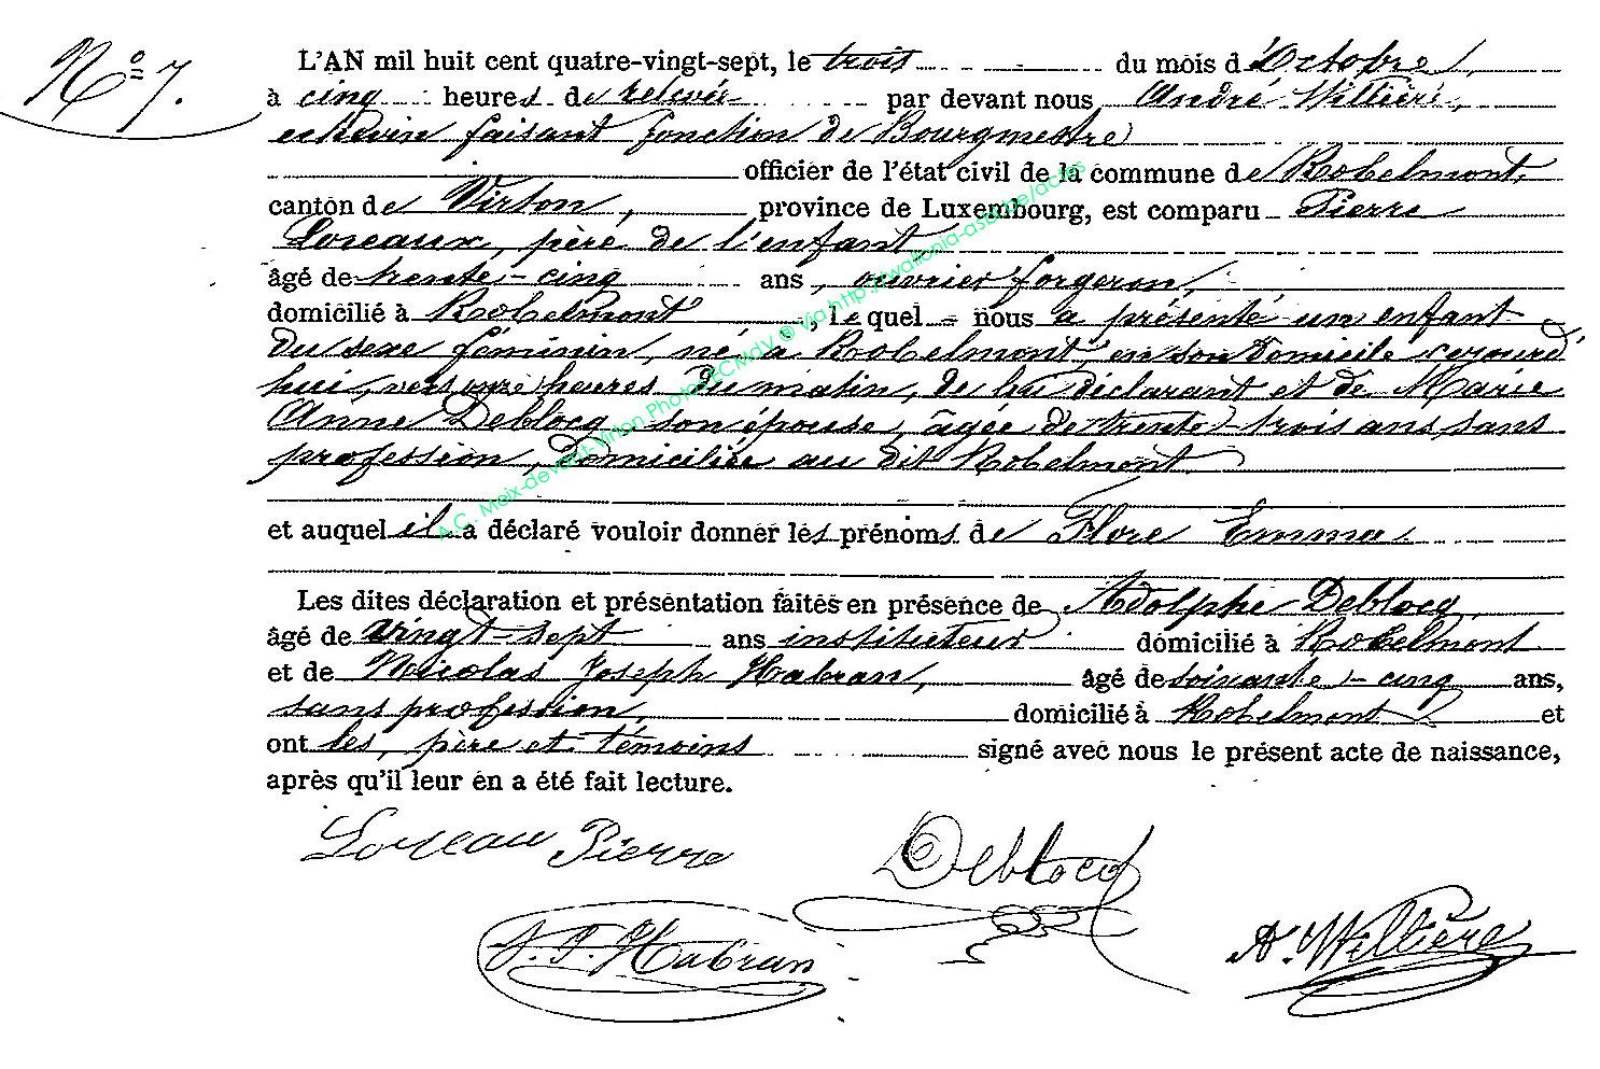 Nº 7.
L'AN mil huit cent quatre-vingt-sept, le trois du mois d'Octobre,
à cinq heures de relevée par devant nous André Willière,
echevin faisant fonction de Bourgmestre
officier de l'état civil de la commune de Robelmont,
canton de Virton, province de Luxembourg, est comparu Pierre
Loreaux, père de l'enfant
âgé de trente-cinq ans, ouvrier forgeron,
domicilié à Robelmont, lequel nous a présenté un enfant
du sexe féminin, né à Robelmont, en son domicile cejourd'
hui, vers onze heures du matin, de lui déclarant et de Marie
Anne Deblocq son épouse, âgée de trente-trois ans, sans
profession, domiciliée au dit Robelmont
et auquel il a déclaré vouloir donner les prénoms de Flore Emma
Les dites déclaration et présentation faites en présence de Adolphe Deblocq
âgé de vingt-sept ans instituteur domicilié à Robelmont
et de Nicolas Joseph Habran, âgé de soixante-cinq ans,
sans profession, domicilié à Robelmont et
ont les, père et témoins signé avec nous le présent acte de naissance,
après qu'il leur en a été fait lecture.
Loreau Pierre
Deblocq
N. J. Habran
A. Willière
A.C. Meix-devant-Virton Photo ECMdV ® Via http://wallonia-asbl.be/actes